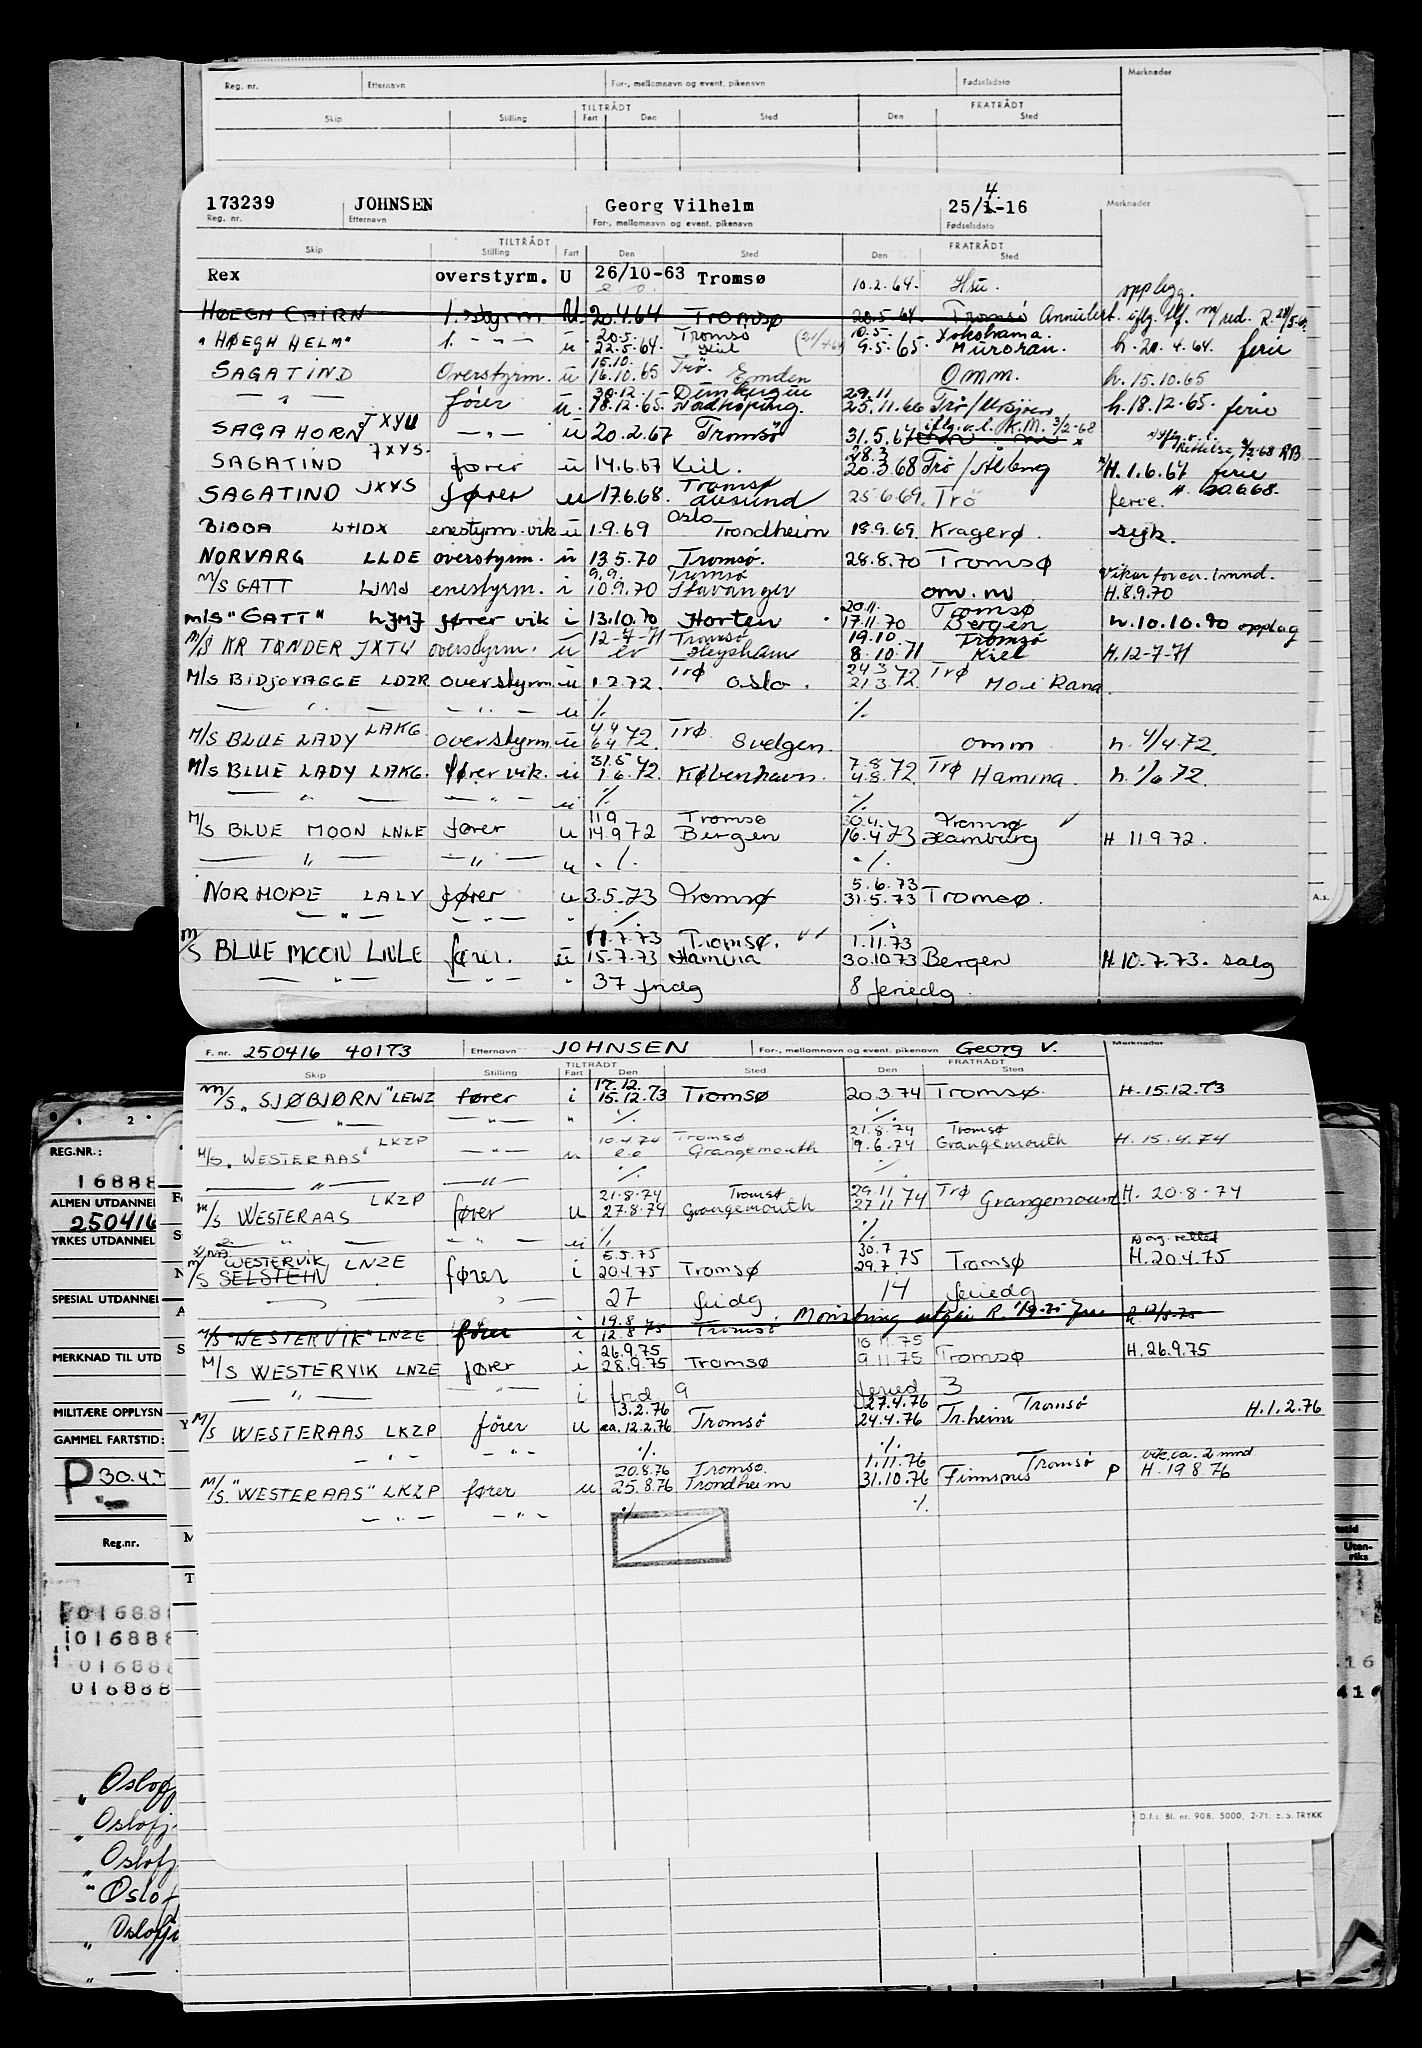 Reg. nr. Etternavn For-, mellomnavn og event. pikenavn Fødselsdato Merknader
TILTRÅDT FRATRÅDT
Skip Stilling Fart Den Sted Den Sted
173239 JOHNSEN Georg Vilhelm 25/4-16
Reg. nr. Etternavn For-, mellomnavn og event. pikenavn Fødselsdato Merknader
TILTRÅDT FRATRÅDT
Skip Stilling Fart Den Sted Den Sted
Rex overstyrm. U 26/10-63 Tromsø 10.2.64. opplegg.
HØEGH CAIRN 1. styrm U 20.4.64 Tromsø 20.5.64. Tromsø Annulert iflg. tlf. m/red.
20.5. Tromsø 10.5. Yokohama
"HØEGH HELM" 1. - " - u 22.5.64. Kiel 9.5.65. Muroran. h. 20.4.64. ferie
15.10. Trø.
SAGATIND Overstyrm. u 16.10.65 Emden omm. h. 15.10.65
30.12. 29.11
- " - fører u. 18.12.65. Nordkøping. 25.11.66 h. 18.12.65. ferie
SAGAHORN JXYU - " - u 20.2.67 Tromsø 31.5.67
JXYS. 28.3
SAGATIND fører u 14.6.67 Kiel. 20.3.68 Trø/Ålborg H. 1.6.67 ferie
Tromsø
SAGATIND JXYS fører u 17.6.68. 25.6.69. Trø ferie. H. 20.6.68.
Oslo
BIBBA LHDX enestyrm. vik u 1.9.69 Trondheim 18.9.69. Kragerø. syk.
NORVARG LLDE overstyrm. u 13.5.70 Tromsø. 28.8.70 Tromsø
9.9. Tromsø Vikar for ca. 1 mnd.
M/S GATT LJMJ enestyrm. i 10.9.70 Stavanger om. m H. 8.9.70
20.11. Tromsø
M/S "GATT" LJMJ fører vik i 13.10.70 Horten 17.11.70 Bergen h. 10.10.70 opplag
12-7-71 Tromsø 19.10 Tromsø
M/S KR TØNDER JXTW overstyrm. u Heysham 8.10.71 Kiel H. 12-7-71
Trø 24.3 Trø
M/S BIDJOVAGGE LDZR overstyrm u 1.2.72. Oslo. 21.3.72. Mo i Rana.
- " - - " - u ./. ./.
4.4 Trø.
M/S BLUE LADY LAKG. overstyrm u 6.4.72. Svelgen. omm h. 4/4.72.
31.5 7.8 Trø
M/S BLUE LADY LAKG. fører vik. u 1.6.72. København. 4.8.72 Hamina. h. 1/6 72.
- " - - " - u ./. ./.
11.9 Tromsø 30.4. Tromsø
M/S BLUE MOON LNLE fører u 14.9.72 Bergen 16.4.73 Hamburg H 11.9.72.
- " - - " - u ./. ./.
5.6.73
NORHOPE LALV fører u 3.5.73 Tromsø 31.5.73 Tromsø.
- " - - " - " ./. ./.
11.7.73 Tromsø. 1.11.73
M/S BLUE MOON LNLE fører. u 15.7.73 Hamina 30.10.73 Bergen H. 10.7.73. salg
- " - - " - " 37 fridg 8 feriedg.
F. nr. 250416 40173 Etternavn JOHNSEN For-, mellomnavn og event. pikenavn Georg V. Merknader
TILTRÅDT FRATRÅDT
Skip Stilling Fart Den Sted Den Sted
17.12.
M/S "SJØBJØRN" LEWZ fører i 15.12.73 Tromsø 20.3.74 Tromsø. H. 15.12.73
- " - - " - " ./. ./.
10.4.74 Tromsø 21.8.74 Tromsø
M/S "WESTERAAS" LKZP - " - u Grangemouth 19.6.74 Grangemouth H. 15.4.74
- " - - " - ./. ./.
21.8.74 Tromsø 29.11 Trø
M/S WESTERAAS LKZP fører u 27.8.74 Grangemouth 27.11.74 Grangemouth H. 20.8.74
- " - - " - u ./. ./.
WESTERVIK 5.5.75 30.7
M/S SELSTEIN LNZE fører i 20.4.75 Tromsø 29.7.75 Tromsø H. 20.4.75
27 fridg 14 feriedg
19.8
M/S "WESTERVIK" LNZE fører i 12.8.75 Tromsø Mønstring utgår
26.9.75
M/S WESTERVIK LNZE fører i 28.9.75 Tromsø 9.11.75 Tromsø H. 26.9.75
- " - - " - i frid 9 feried 3
13.2.76 27.4.76 Tromsø
M/S WESTERAAS LKZP fører u ca. 12.2.76 Tromsø 24.4.76 Tr.heim H. 1.2.76
- " - - " - ./. ./.
20.8.76 Tromsø. 1.11.76 Tromsø vik. ca. 2 mnd
M/S. "WESTERAAS" LKZP fører u 25.8.76 Trondheim 31.10.76 Finnsnes P H. 19.8.76
- " - - " - ./. ./.
D.f.s. Bl. nr. 908. 5000. 2-71. E.S. TRYKK
REG.NR.:
16888
ALMEN UTDANNEL
250416
YRKES UTDANNEL
SPESIAL UTDANNEL
MERKNAD TIL UTD
MILITÆRE OPPLYSN
GAMMEL FARTSTID:
P 30.4.
Reg.nr.
016888
016888
016888
016888
Uten-
riks
Oslofj
Oslofj
Oslofj
Oslof
Oslofj